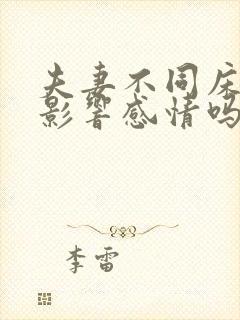 夫妻不同床
影响感情吗
李雷